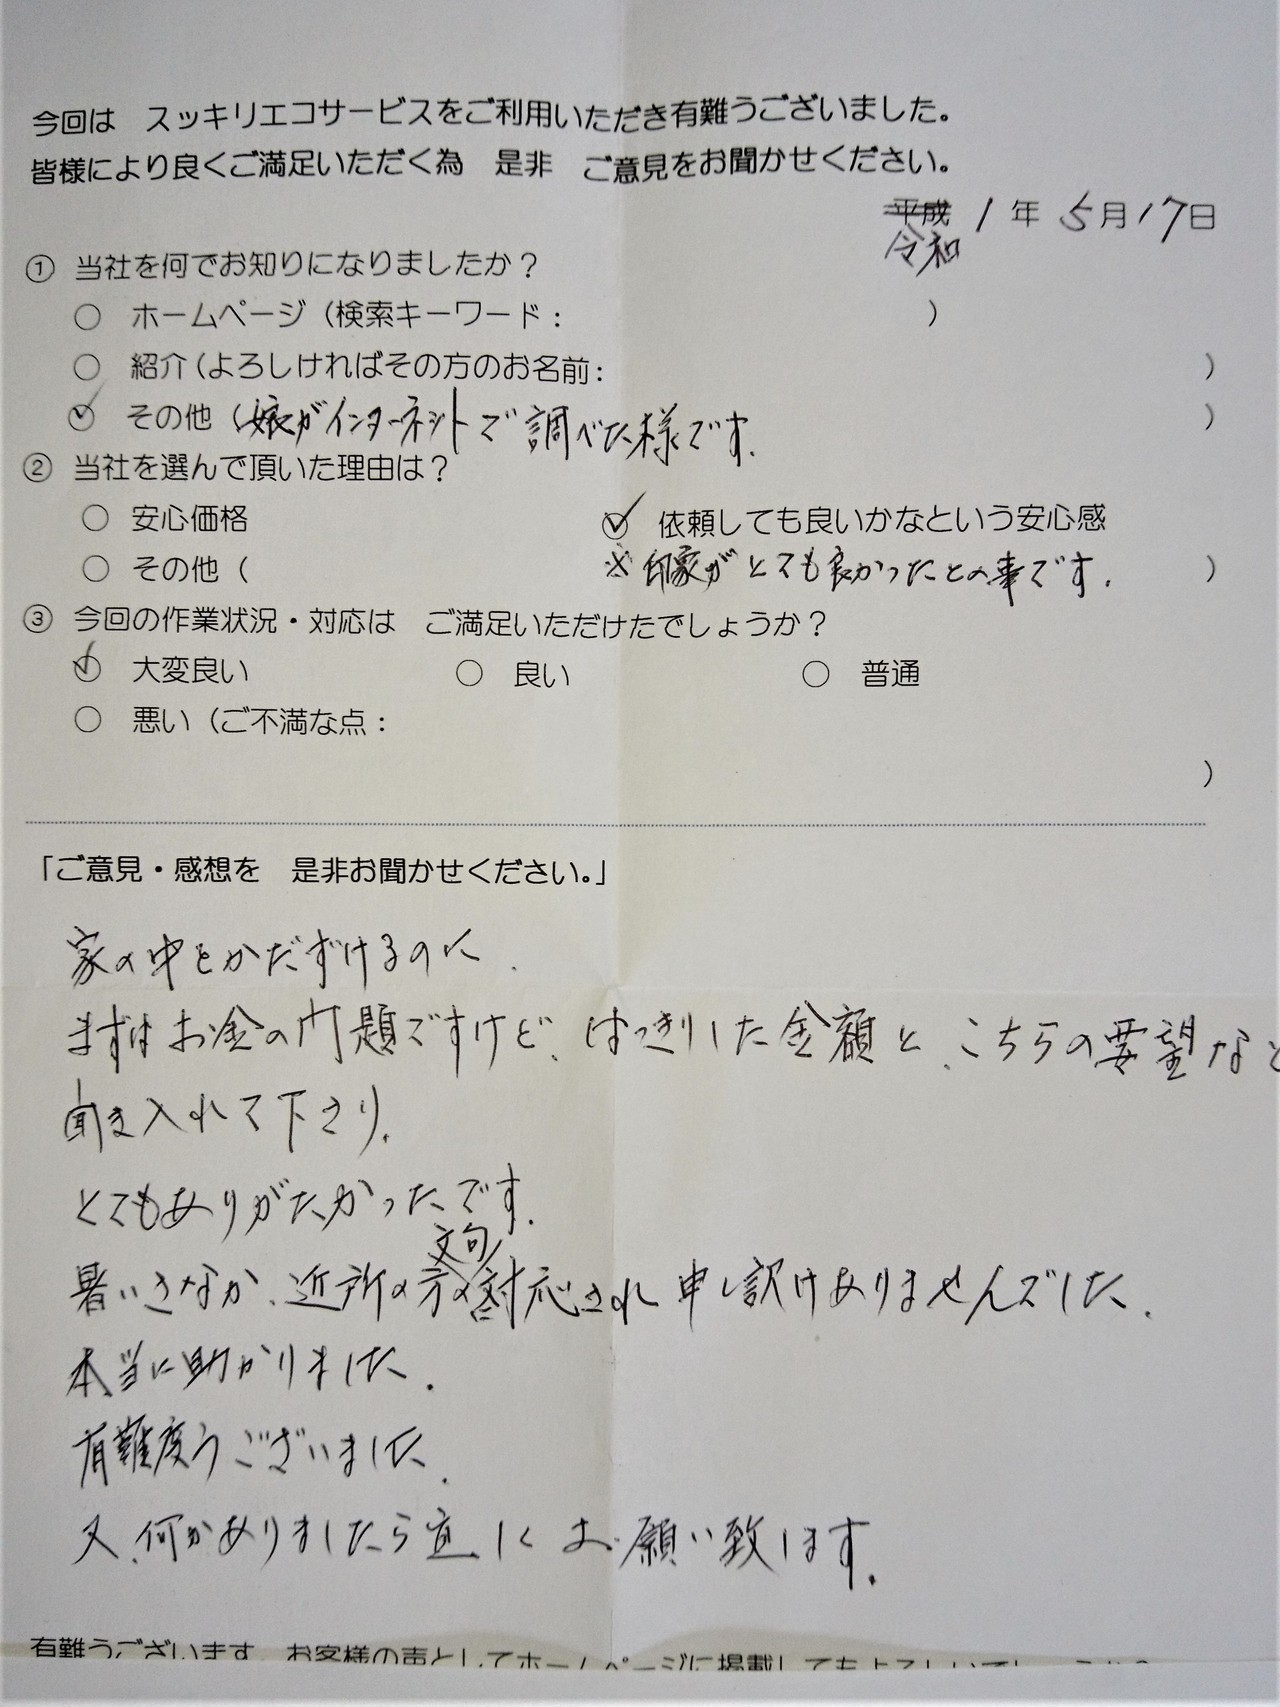 今回は　スッキリエコサービスをご利用いただき有難うございました。
皆様により良くご満足いただく為　是非　ご意見をお聞かせください。
平成 1年 5月17日
令和
① 当社を何でお知りになりましたか？
○ ホームページ（検索キーワード：　）
○ 紹介（よろしければその方のお名前：　）
○ その他（娘がインターネットで調べた様です.　）
② 当社を選んで頂いた理由は？
○ 安心価格　○ 依頼しても良いかなという安心感
○ その他（　※印象がとても良かったとの事です.　）
③ 今回の作業状況・対応は　ご満足いただけたでしょうか？
○ 大変良い　○ 良い　○ 普通
○ 悪い（ご不満な点：
）
「ご意見・感想を　是非お聞かせください。」
家の中をかだずけるのに.
まずはお金の問題ですけど、はっきりした金額と、こちらの要望など
聞き入れて下さり.
とてもありがたかったです.
文句
暑いさなか、近所の方の対応され申し訳けありませんでした.
本当に助かりました.
有難度うございました.
又、何かありましたら宜しくお願い致します.
有難うございます。お客様の声としてホームページに掲載してもよろしいでしょうか？